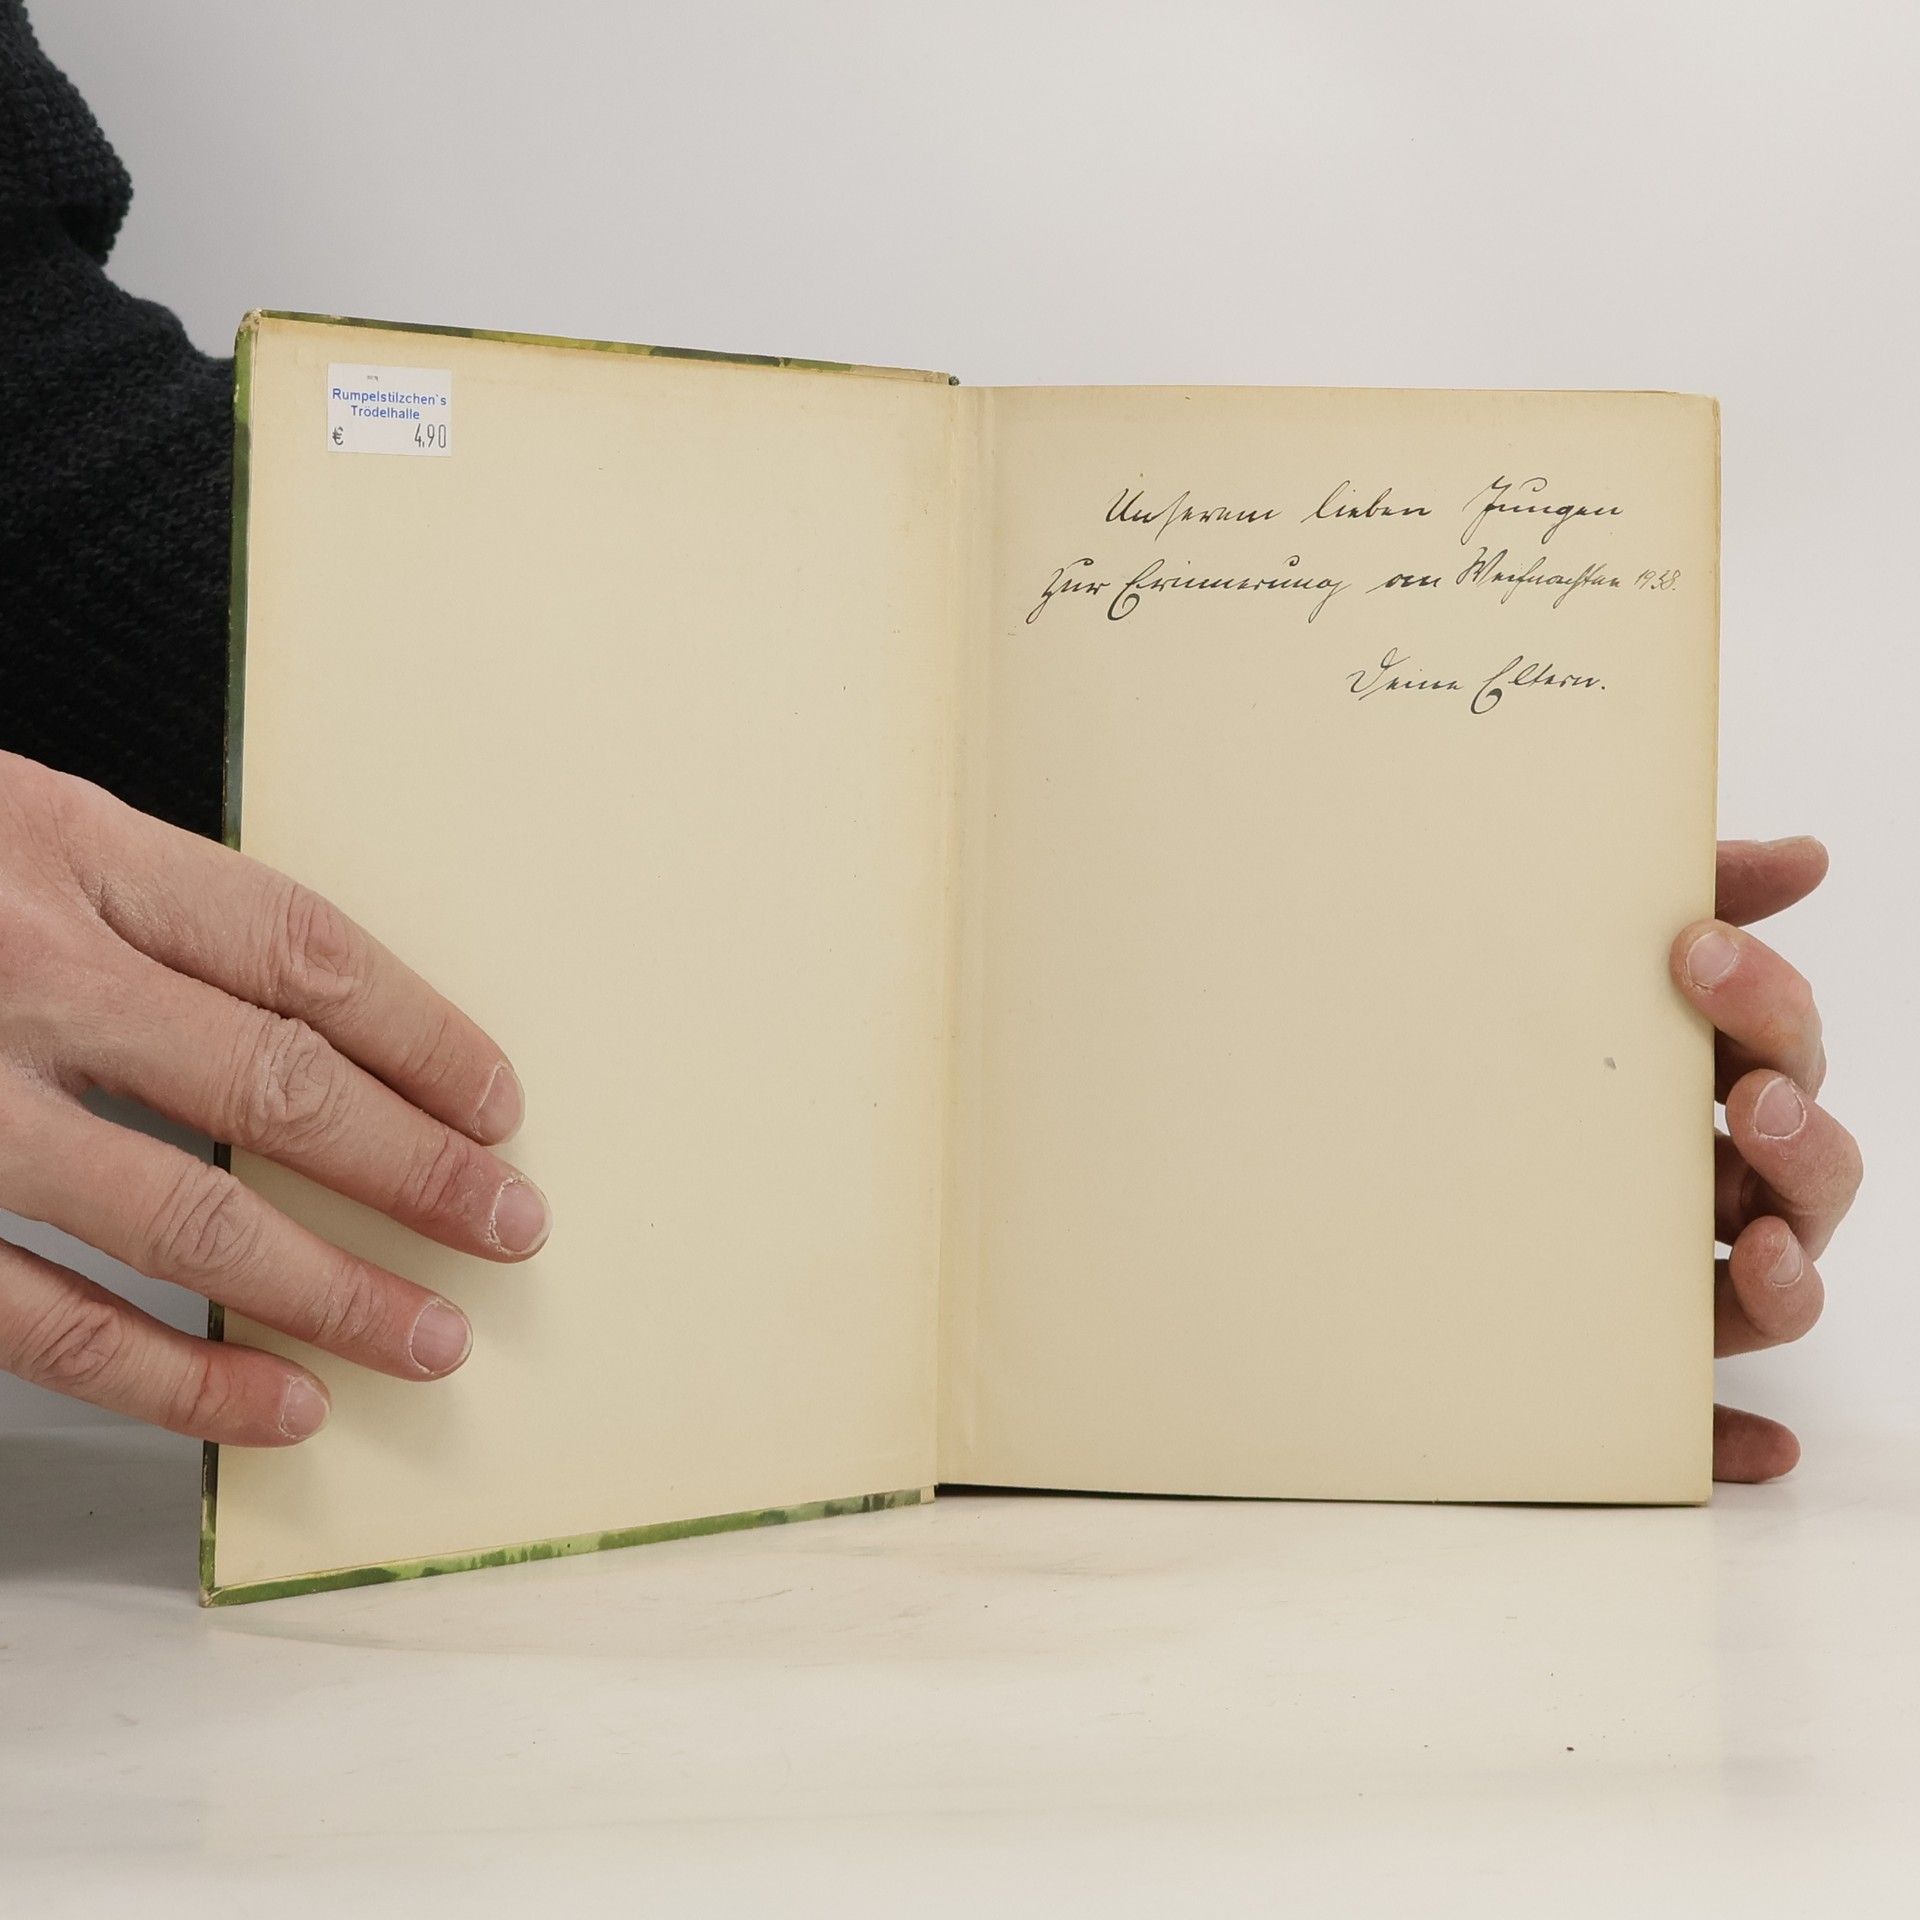 Rumpelstilzchen`s
Trödelhalle
€ 4,90
Unserem lieben Jungen
zur Erinnerung an Weihnachten 1938.
Deine Eltern.